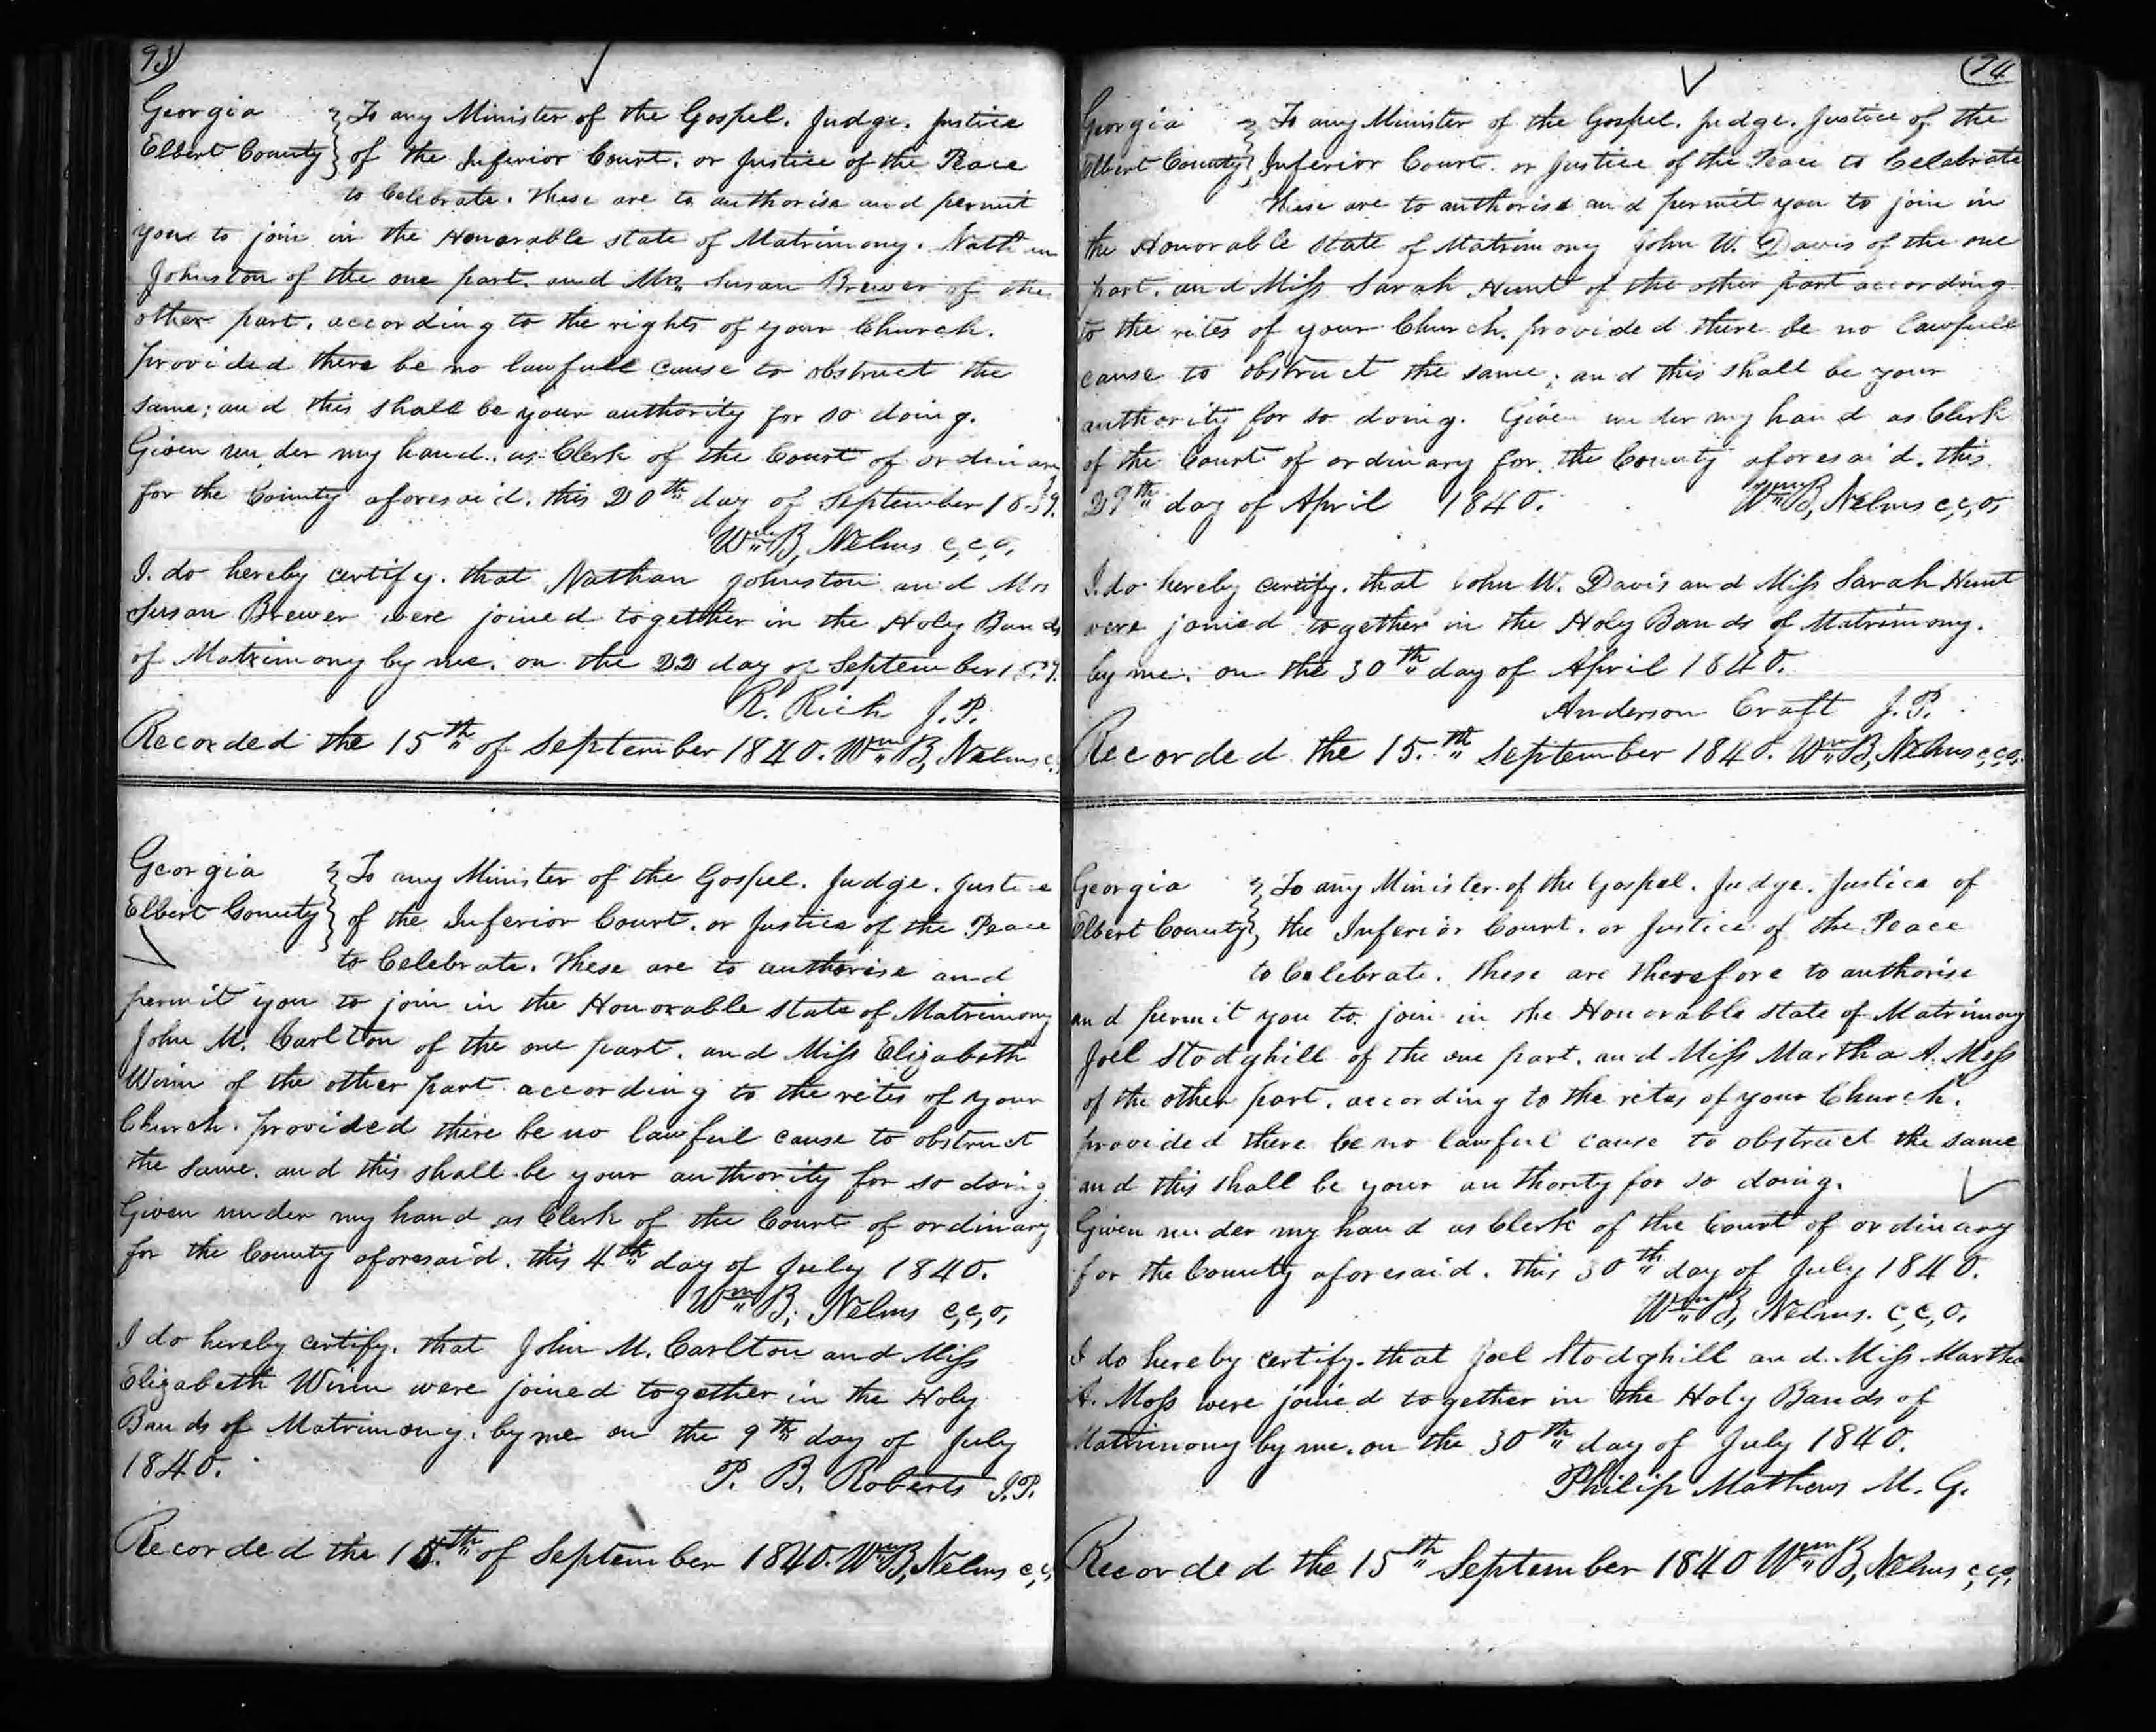 93
Georgia To any Minister of the Gospel. Judge. Justice
Elbert County of the Inferior Court. or Justice of the Peace
to Celebrate. These are to authorise and permit
you to join in the Honorable state of Matrimony. Nathan
Johnston of the one part. and Mrs. Susan Brewer of the
other part. according to the rights of your Church.
provided there be no lawfull cause to obstruct the
same; and this shall be your authority for so doing.
Given under my hand. as Clerk of the Court of ordinary
for the County aforesaid. this 20th day of September 1839.
Wm B, Nelms c,c,o,
I. do hereby certify. that Nathan Johnston and Mrs
Susan Brewer were joined together in the Holy Bands
of Matrimony by me. on the 22 day of September 1839.
R. Rich J.P.
Recorded the 15th of September 1840. Wm B, Nelms c,
Georgia To any Minister of the Gospel. Judge. Justice
Elbert County of the Inferior Court. or Justice of the Peace
to Celebrate. These are to authorise and
permit you to join in the Honorable state of Matrimony
John M. Carlton of the one part. and Miss Elizabeth
Winn of the other part according to the rites of your
Church. provided there be no lawful cause to obstruct
the same. and this shall be your authority for so doing
Given under my hand as Clerk of the Court of ordinary
for the County aforesaid. this 4th day of July 1840.
Wm B, Nelms c,c,o,
I do hereby certify. that John M. Carlton and Miss
Elizabeth Winn were joined together in the Holy
Bands of Matrimony. by me on the 9th day of July
1840.
P. B. Roberts J.P.
Recorded the 15th of September 1840. Wm B, Nelms c,c,
94
Georgia To any Minister of the Gospel. Judge. Justice of the
Elbert County, Inferior Court. or Justice of the Peace to Celebrate
These are to authorise and permit you to join in
the Honorable state of Matrimony John W. Davis of the one
part. and Miss Sarah Hunt of the other part according
to the rites of your Church. provided there be no lawfull
cause to obstruct the same; and this shall be your
authority for so doing. Given under my hand as Clerk
of the Court of ordinary for the County aforesaid. this
29th day of April 1840. Wm B, Nelms c,c,o,
I. do hereby certify. that John W. Davis and Miss Sarah Hunt
were joined together in the Holy Bands of Matrimony.
by me. on the 30th day of April 1840.
Anderson Craft J.P.
Recorded the 15.th September 1840. Wm B, Nelms c,c,o,
Georgia To any Minister of the Gospel. Judge. Justice of
Elbert County, the Inferior Court. or Justice of the Peace
to Celebrate. These are therefore to authorise
and permit you to join in the Honorable state of Matrimony
Joel Stodghill of the one part. and Miss Martha A. Moss
of the other part. according to the rites of your Church.
provided there be no lawful cause to obstruct the same
and this shall be your authority for so doing.
Given under my hand as Clerk of the Court of ordinary
for the County aforesaid. this 30th day of July 1840.
Wm B, Nelms. c,c,o,
I do hereby certify. that Joel Stodghill and Miss Martha
A. Moss were joined together in the Holy Bands of
Matrimony by me. on the 30th day of July 1840.
Philip Mathews M. G.
Recorded the 15th September 1840 Wm B, Nelms c,c,o,